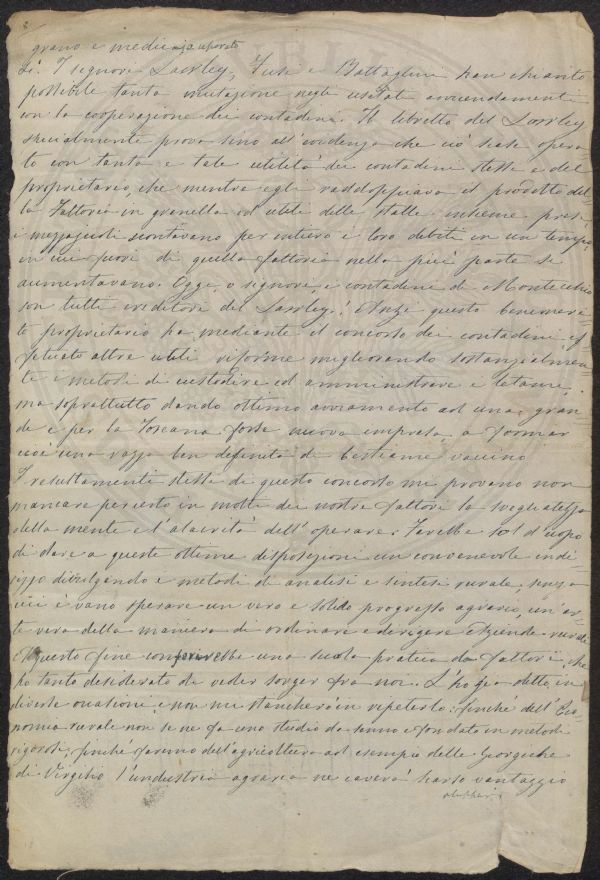 grano e medica
di. I signori Lawley, Fusi e Battaglini han chiarito
possibile tanta mutazione negli usitati avvicendamenti
con la cooperazione dei contadini. Il libretto del Lawley
specialmente prova sino all'evidenza che ciò siasi opera
to con tanta e tale utilità dei contadini stessi e del
proprietario, che mentre egli raddoppiava il prodotto del=
la Fattoria in granella ed utili delle stalle insieme presi
i mezzajuoli scontavano per intiero i loro debiti in un tempo
in cui fuori di quella fattoria nella più parte si
aumentavano. Oggi, o signori, i contadini di Montecchio
son tutti creditori del Lawley! Anzi questo benemeri=
to proprietario ha mediante il concorso dei contadini ef
fetuato altre utili riforme migliorando sostanzialmen=
te i metodi di custodire ed amministrare i letami,
ma soprattutto dando ottimo avviamento ad una gran=
de e per la Toscana forse nuova impresa, a formar
cioè una razza ben definita di bestiame vaccino
I resultamenti stessi di questo concorso mi provano non
mancare per certo in molti dei nostri fattori la svegliatezza
della mente e l'alacrità dell'operare. Sarebbe sol d'uopo
di dare a queste ottime disposizioni un convenevole indi=
rizzo divulgando i metodi di analisi e sintesi rurale, senza
cui è vano sperare un vero e solido progresso agrario, un'ar=
te vera della maniera di ordinare e dirigere Aziende rurali
A questo fine conferirebbe una scuola pratica da fattori, che
ho tanto desiderato di veder sorger fra noi. L'ho già detto in
diverse occasioni e non mi stancherò in ripeterlo: finché dell'Eco=
nomia rurale non se ne fa uno studio da senno e fondato in metodi
rigorosi, finché faremo dell'agricoltura ad esempio delle Georgiche
di Virgilio l'industria agraria ne caverà scarso vantaggio